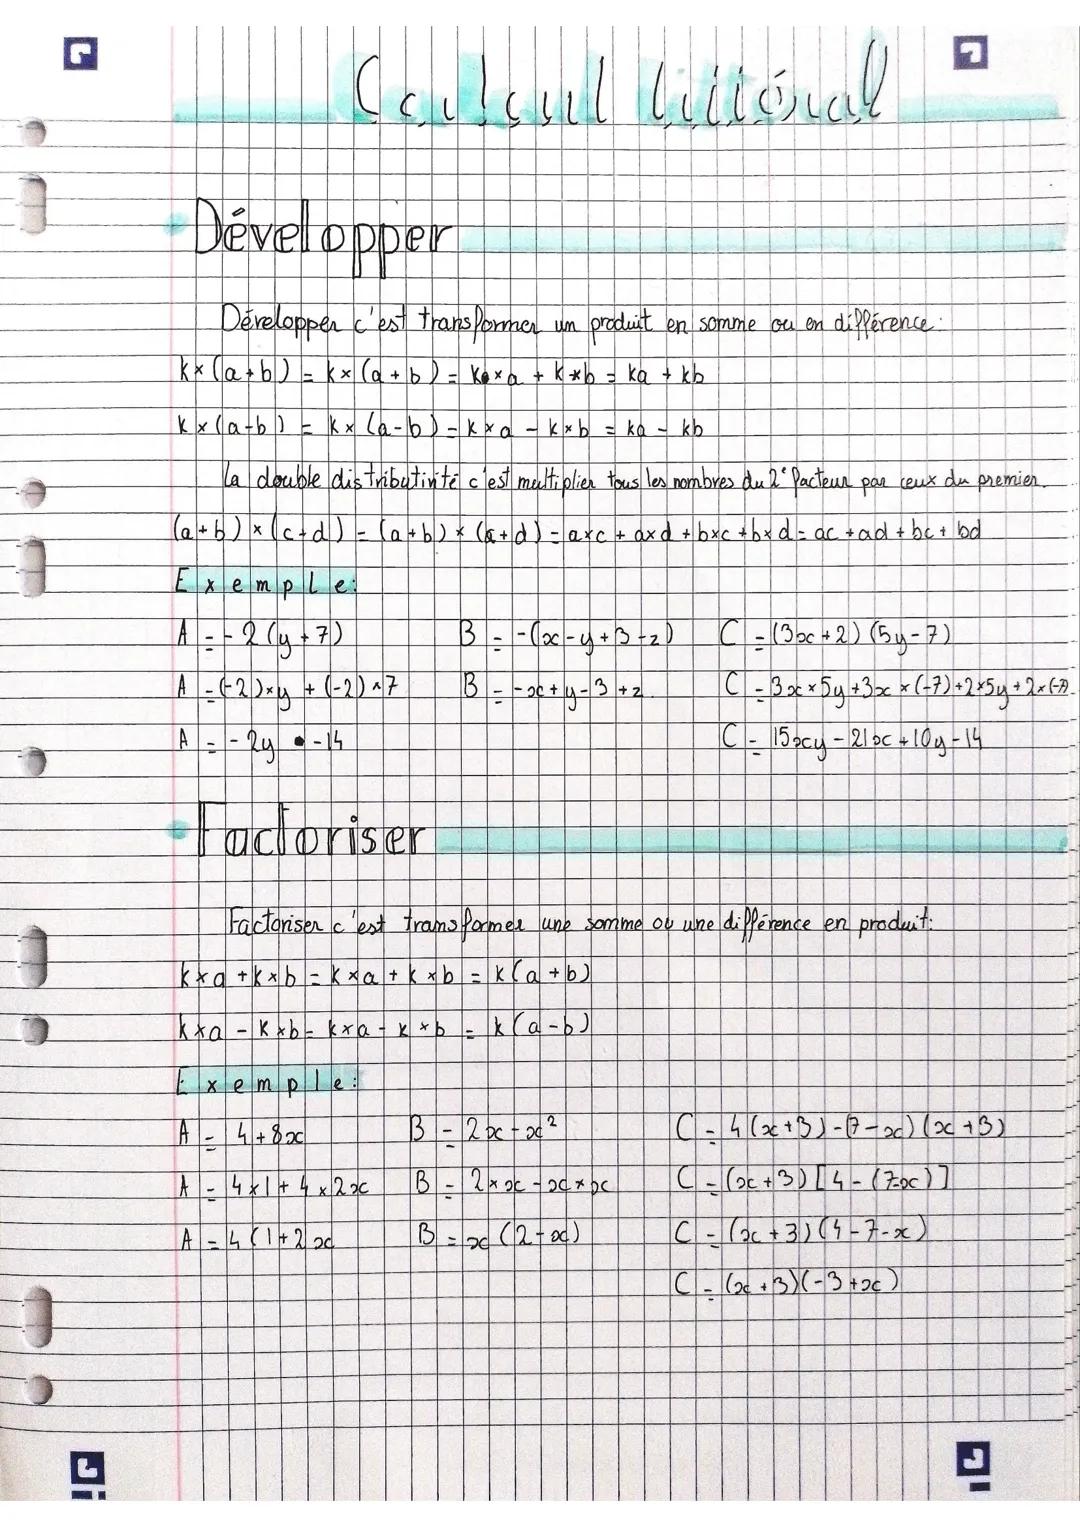 Calcul littéral
Développer
Développer c'est transformer un produit en somme ou en différence:
k×(a+b) = k×(a+b) = k×a + k×b = ka + kb
k×(a-b) = k×(a-b) = k×a - k×b = ka - kb
La double distributivité c'est multiplier tous les nombres du 2e facteur par ceux du premier.
(a+b)×(c+d) = (a+b)×(c+d) = a×c + a×d + b×c + b×d = ac + ad + bc + bd
Exemple:
A = -2(y+7) B = -(x-y+3-z) C = (3x+2)(5y-7)
A = (-2)×y + (-2)×7 B = -x+y-3+z C = 3x×5y+3x×(-7)+2×5y+2×(-7).
A = -2y -14 C = 15xy-21x+10y-14
Factoriser
Factoriser c'est transformer une somme ou une différence en produit:
k×a + k×b = k×a + k×b = k(a+b)
k×a - k×b = k×a - k×b = k(a-b)
Exemple:
A = 4+8x B = 2x-x² C = 4(x+3)-(7-x)(x+3)
A = 4×1+4×2x B = 2×x-x×x C = (x+3)[4-(7-x)]
A = 4(1+2x B = x(2-x) C = (x+3)(4-7-x)
C = (x+3)(-3+x)